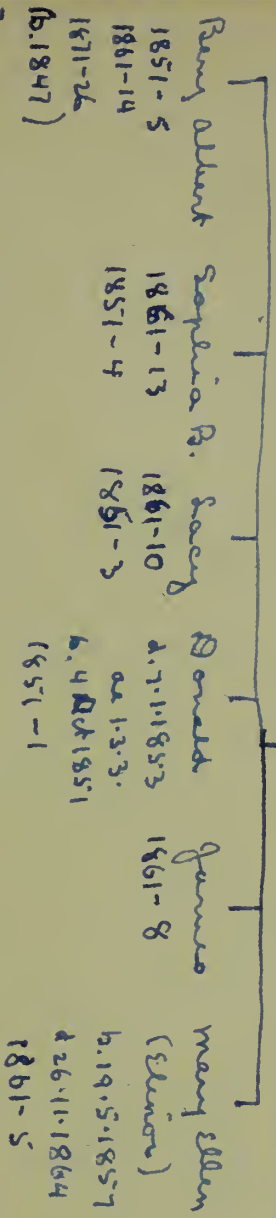 Benj Albert
1851-5
1861-14
1871-26
(b.1847)
Sophia B.
1861-13
1851-4
Lacy
1861-10
1851-3
Donald
d.7.1.1853
ae 1.3.3.
b. 4 Oct 1851
1851-1
James
1861-8
Mary Ellen
(Elinor)
b.19.5.1857
d 26.11.1864
1861-5